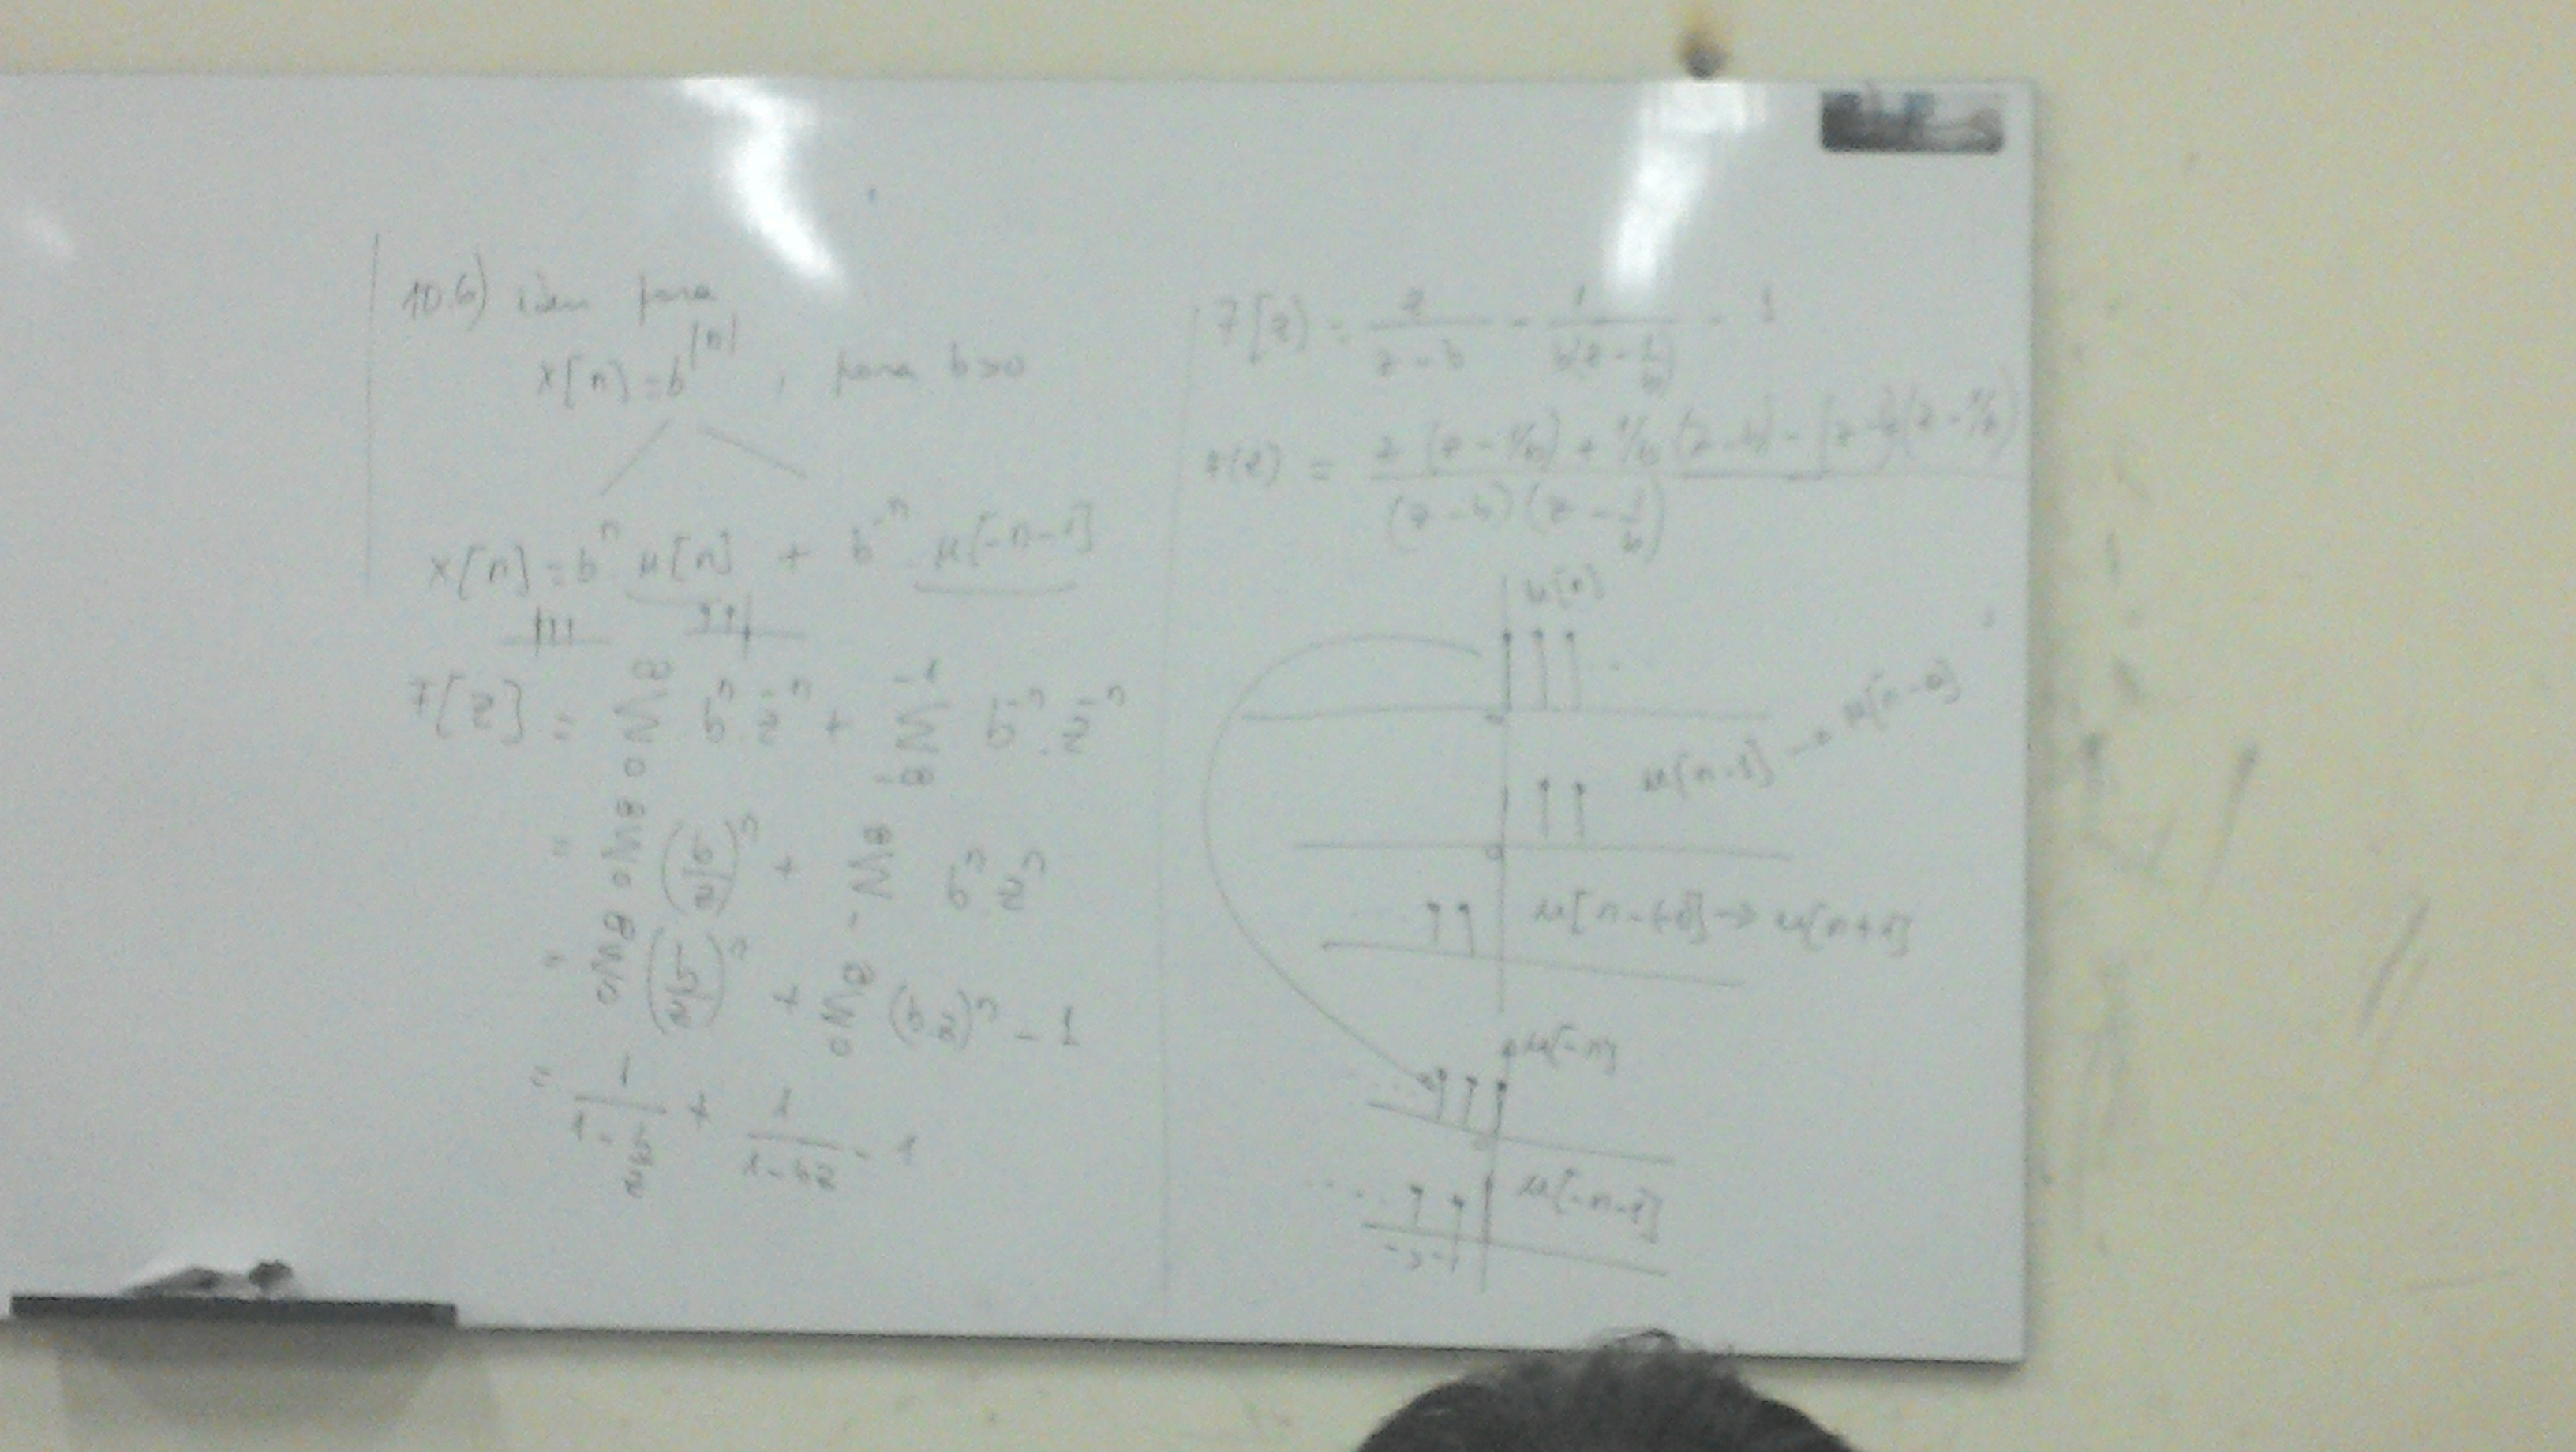 10.6) idem para
x[n] = b^|n| , para b>0
x[n] = b^n μ[n] + b^-n μ[-n-1]
F[z] = Σ_0^∞ b^n z^-n + Σ_-∞^-1 b^-n . z^-n
= Σ_0^∞ (b/z)^n + Σ_1^∞ b^n z^n
= Σ_0^∞ (b/z)^n + Σ_0^∞ (b z)^n - 1
= 1/(1 - b/z) + 1/(1 - bz) - 1
F[z] = z/(z-b) - 1/(b(z - 1/b)) - 1
F(z) = (z (z - 1/b) + 1/b (z-b) - (z-b)(z - 1/b)) / ((z-b)(z - 1/b))
μ[n]
0
μ[n-1] → μ[n-a]
0
μ[n-(-1)] → μ[n+1]
μ[-n]
μ[-n-1]
-2 -1